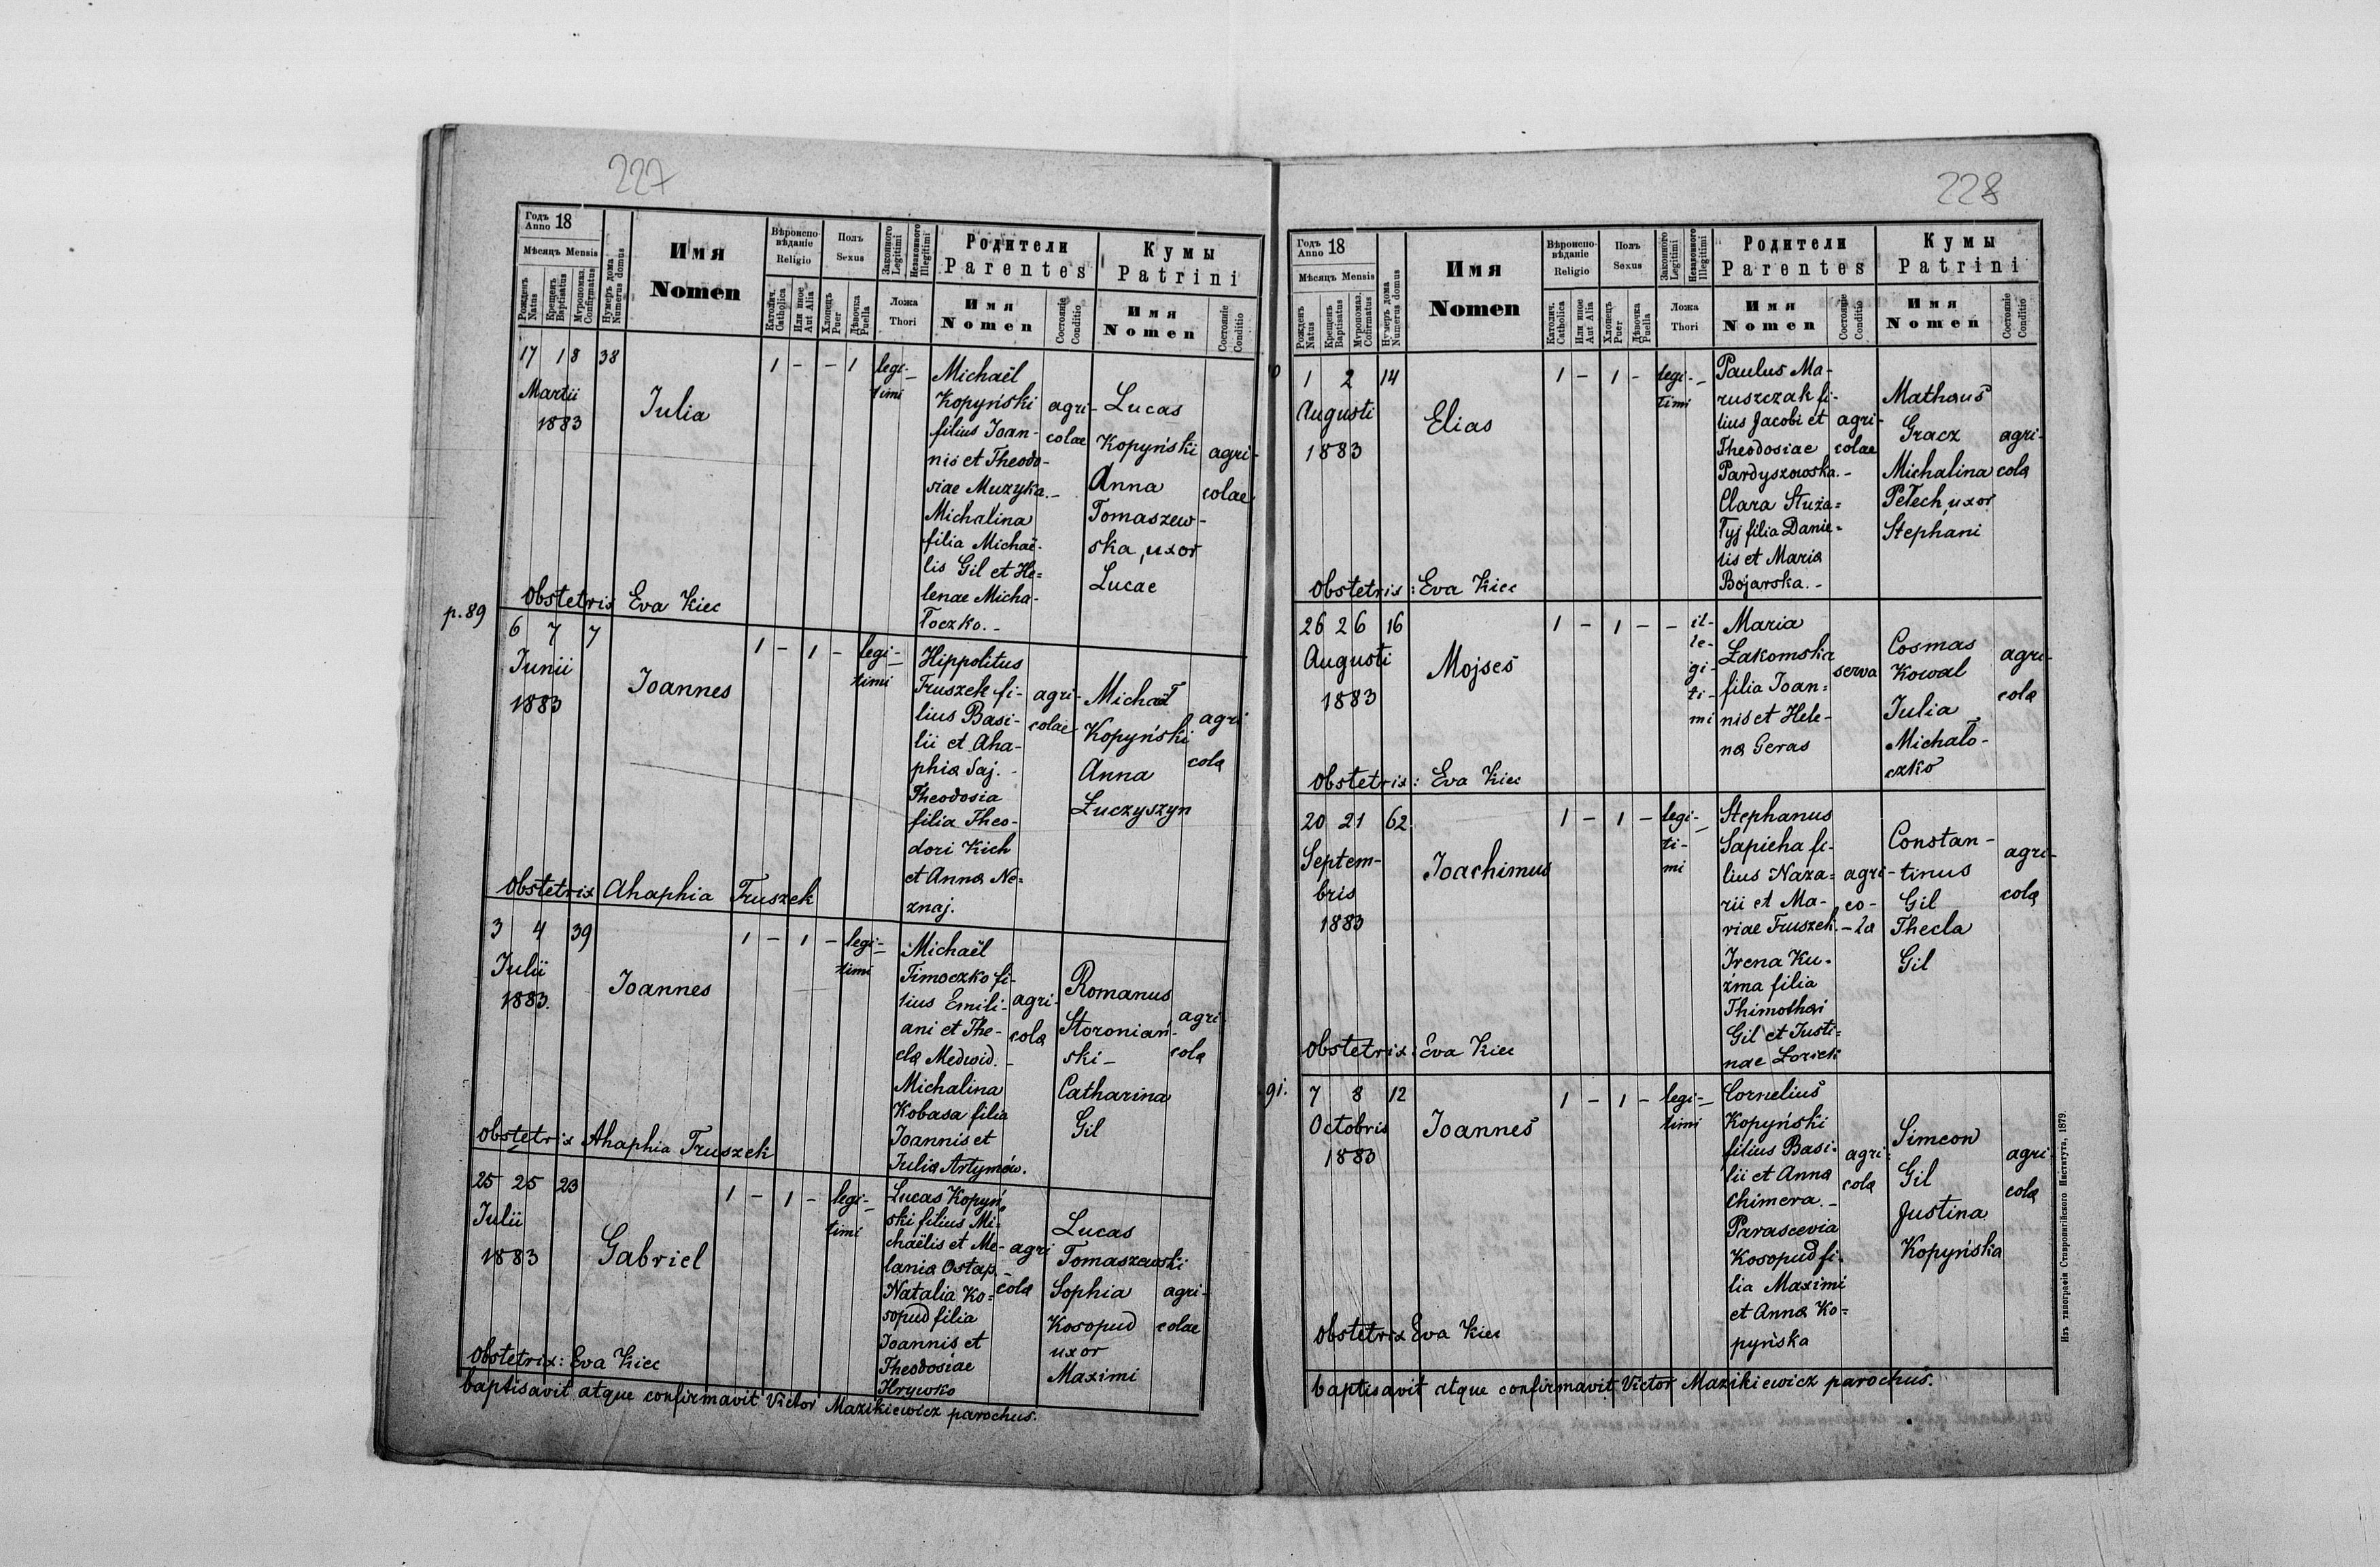 227
Годъ Anno 18
Мѣсяцъ Mensis
Рожденъ Natus
Крещенъ Baptisatus
Мѵропомаз. Confirmatus
Нумеръ дома Numerus domus
Имя
Nomen
Вѣроиспо-
вѣданіе
Religio
Католич. Catholica
Или иное Aut Alia
Полъ
Sexus
Хлопецъ Puer
Дѣвочка Puella
Законного Legitimi
Незаконного Illegitimi
Ложа
Thori
Родители
Parentes
Имя
Nomen
Состояніе Conditio
Кумы
Patrini
Имя
Nomen
Состояніе Conditio
17 18 38
Martii
1883
Iulia
1 - - 1
legi- -
timi
Michaël
Kopyński
filius Ioan-
nis et Theodo-
siae Muzyka.-
Michalina
filia Michaë-
lis Gil et He=
lenae Micha-
łoczko.-
agri-
colae
Lucas
Kopyński
Anna
Tomaszew-
ska, uxor
Lucae
agri-
colae
Obstetrix Eva Kiec
p. 89
6 7 7
Junii
1883
Ioannes
1 - 1 -
legi- -
timi
Hippolitus
Truszek fi-
lius Basi-
lii et Aha-
phiæ Saj.-
Theodosia
filia Theo-
dori Kich
et Annæ Ne=
znaj.
agri-
colae
Michał
Kopyński
Anna
Łuczyszyn
agri
colæ
Obstetrix Ahaphia Truszek
3 4 39
Iulii
1883.
Ioannes
1 - 1 -
legi- -
timi
Michaël
Timoczko fi-
lius Emili-
ani et The-
clæ Medwid.-
Michalina
Kobasa filia
Ioannis et
Iuliæ Artymów.
agri-
colæ
Romanus
Storoniań-
ski-
Catharina
Gil
agri-
colæ
Obstetrix Ahaphia Truszek
25 25 23
Iulii
1883
Gabriel
1 - 1 -
legi- -
timi
Lucas Kopyń
ski filius Mi=
chaëlis et Me-
laniæ Ostap.-
Natalia Ko=
sopud filia
Ioannis et
Theodosiae
Hrywko
agri
colæ
Lucas
Tomaszewski
Sophia
Kosopud
uxor
Maximi
agri-
colae
Obstetrix: Eva Kiec
baptisavit atque confirmavit Victor Mazikiewicz parochus.
228
Годъ Anno 18
Мѣсяцъ Mensis
Рожденъ Natus
Крещенъ Baptisatus
Мѵропомаз. Confirmatus
Нумеръ дома Numerus domus
Имя
Nomen
Вѣроиспо-
вѣданіе
Religio
Католич. Catholica
Или иное Aut Alia
Полъ
Sexus
Хлопецъ Puer
Дѣвочка Puella
Законного Legitimi
Незаконного Illegitimi
Ложа
Thori
Родители
Parentes
Имя
Nomen
Состояніе Conditio
Кумы
Patrini
Имя
Nomen
Состояніе Conditio
1 2 14
Augusti
1883
Elias
1 - 1 -
legi- -
timi
Paulus Ma-
ruszczak fi-
lius Jacobi et
Theodosiae
Pardyszowska.-
Clara Stuża=
łyj filia Danie=
lis et Mariæ
Bojarska.-
agri-
colae
Mathæus
Gracz
Michalina
Pełech, uxor
Stephani
agri-
colæ
Obstetrix: Eva Kiec
26 26 16
Augusti
1883
Mojses
1 - 1 - -
il-
le-
gi-
ti-
mi
Maria
Łakomska
filia Ioan=
nis et Hele-
næ Geras
serva
Cosmas
Kowal
Iulia
Michało-
czko
agri-
colæ
Obstetrix: Eva Kiec
20 21 62
Septem-
bris
1883
Ioachimus
1 - 1 -
legi- -
ti-
mi
Stephanus
Sapieha fi-
lius Naza=
rii et Ma-
riae Truszek.-
Irena Ku-
źma filia
Thimothæi
Gil et Iusti=
nae Łozick
agri-
co-
læ
Constan-
tinus
Gil
Thecla
Gil
agri-
colæ
Obstetrix: Eva Kiec
91.
7 8 12
Octobris
1883
Ioannes
1 - 1 -
legi- -
timi
Cornelius
Kopyński
filius Basi-
lii et Annæ
Chimera.-
Parascevia
Kosopud fi-
lia Maximi
et Annæ Ko=
pyńska
agri-
colæ
Simeon
Gil
Justina
Kopyńska
agri
colæ
Obstetrix Eva Kiec
baptisavit atque confirmavit Victor Mazikiewicz parochus.
Изъ типографіи Ставропигійского Института, 1879.